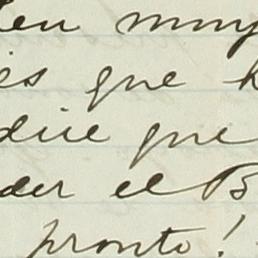 ien muy
es que h
dice que
der el B
pronto!